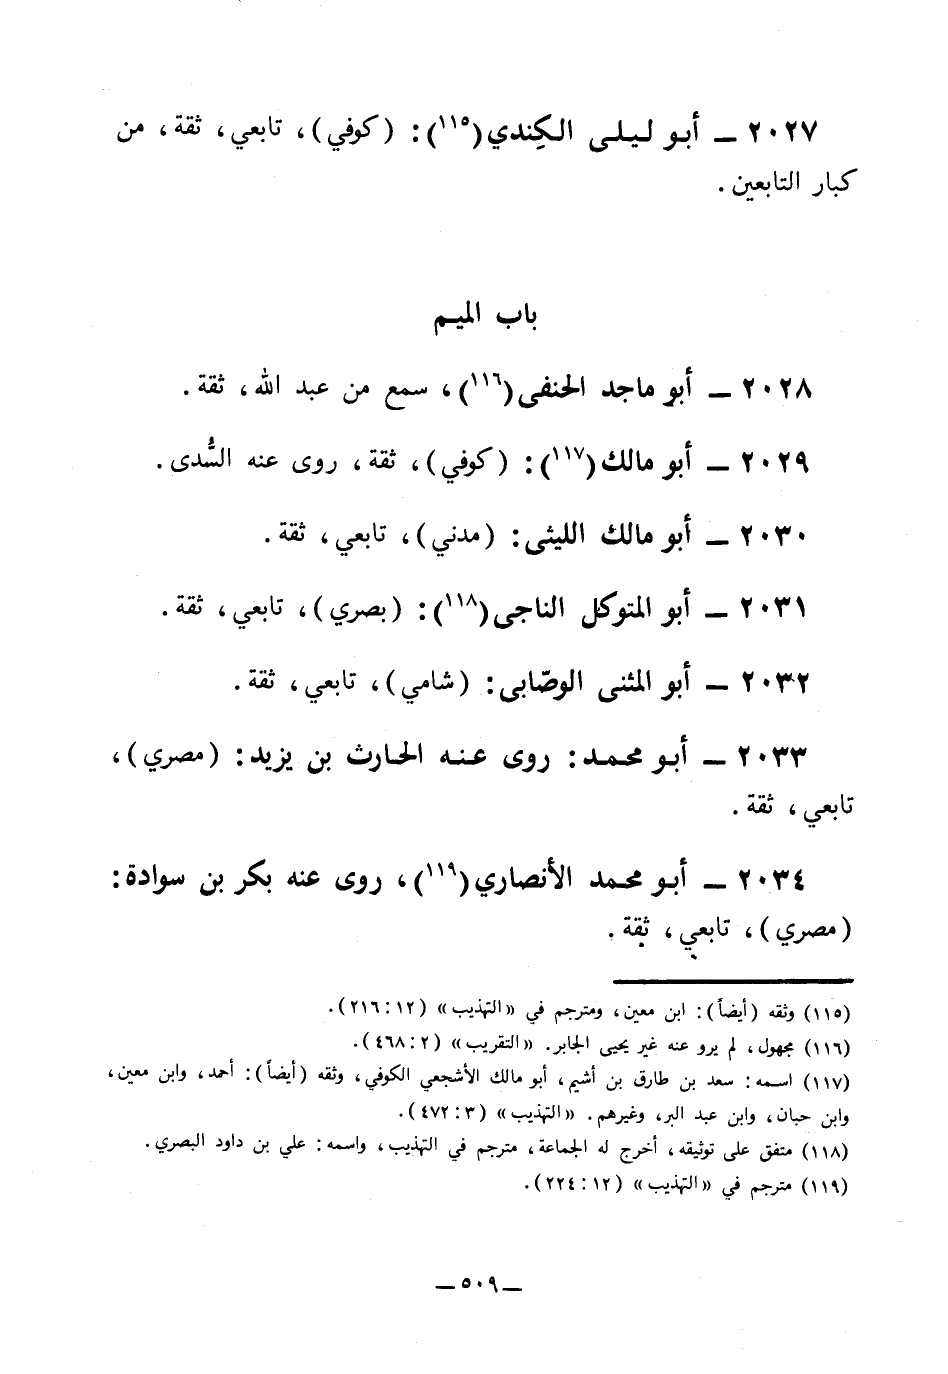 ٢٠٢٧ ـ أبو ليلى الكِندي(١١٥): (كوفي)، تابعي، ثقة، من
كبار التابعين.
باب الميم
٢٠٢٨ ـ أبو ماجد الحنفى(١١٦)، سمع من عبد الله، ثقة.
٢٠٢٩ ـ أبو مالك(١١٧): (كوفي)، ثقة، روى عنه السُّدى.
٢٠٣٠ ـ أبو مالك الليثى: (مدني)، تابعي، ثقة.
٢٠٣١ ـ أبو المتوكل الناجى(١١٨): (بصري)، تابعي، ثقة.
٢٠٣٢ ـ أبو المثنى الوصّابى: (شامي)، تابعي، ثقة.
٢٠٣٣ ـ أبو محمد: روى عنه الحارث بن يزيد: (مصري)،
تابعي، ثقة.
٢٠٣٤ ـ أبو محمد الأنصاري(١١٩)، روى عنه بكر بن سوادة:
(مصري)، تابعي، ثقة.
(١١٥) وثقه (أيضاً): ابن معين، ومترجم في «التهذيب» (١٢: ٢١٦).
(١١٦) مجهول، لم يرو عنه غير يحيى الجابر. «التقريب» (٢: ٤٦٨).
(١١٧) اسمه: سعد بن طارق بن أشيم، أبو مالك الأشجعي الكوفي، وثقه (أيضاً): أحمد، وابن معين،
وابن حبان، وابن عبد البر، وغيرهم. «التهذيب» (٣: ٤٧٢).
(١١٨) متفق على توثيقه، أخرج له الجماعة، مترجم في التهذيب، واسمه: علي بن داود البصري.
(١١٩) مترجم في «التهذيب» (١٢: ٢٢٤).
ـ ٥٠٩ ـ